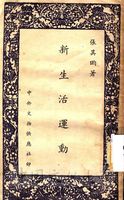 張其昀著
新生活運動
中央文物供應社印